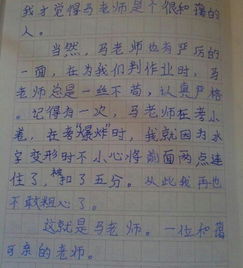 我才觉得马老师是个很和蔼的
人。
当然，马老师也有严厉的
一面，在为我们判作业时，马
老师总是一丝不苟，认真严格
。记得有一次，马老师在考小
卷，在考“爆炸”时，我就因为水
字变形时不小心将前面两点连
住了，被扣了五分。从此我再也
不敢粗心了。
这就是马老师。一位和蔼
可亲的老师。